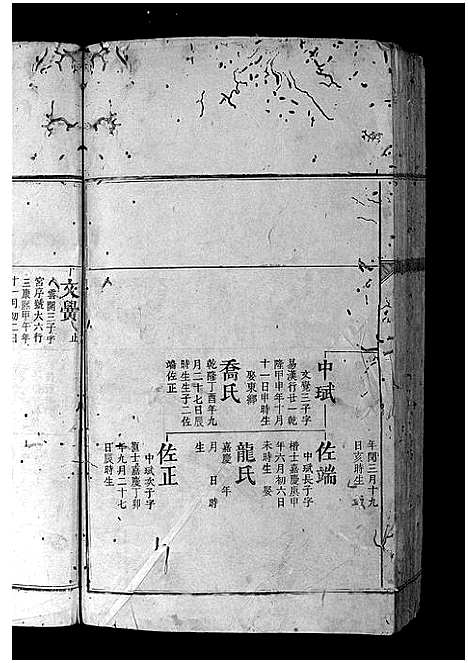 年閏三月十九
日亥時生
中珷
文覺三子字
易漢行廿一乾
隆甲申年十月
十一日申時生
娶東鄉
喬氏
乾隆丁酉年九
月二十七日辰
時生生子二佐
端佐正
佐端
中珷長子字
楷士嘉慶庚申
年六月初六日
未時生娶
龍氏
嘉慶年
月日時
生
佐正
中珷次子字
嘉慶丁卯
年九月二十七
日辰時生
雲閣三子字
宮序號大六行
三康熙甲午年
十一月初二日